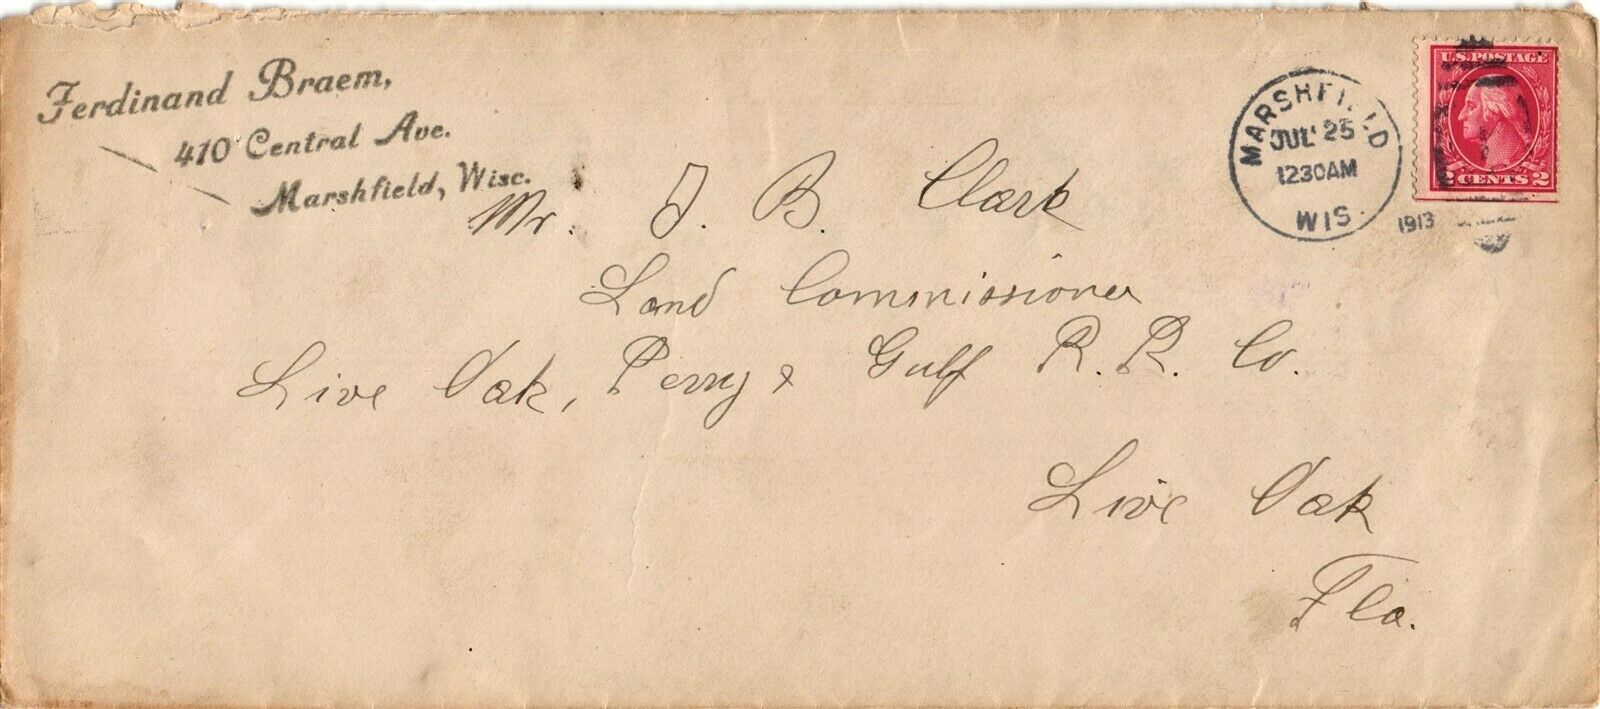 Ferdinand Braem,
410 Central Ave.
Marshfield, Wisc.
MARSHFIELD
JUL 25
1230AM
WIS.
1913
U.S. POSTAGE
2 CENTS 2
Mr. J. B. Clark
Land Commissioner
Live Oak, Perry & Gulf R. R. Co.
Live Oak
Fla.